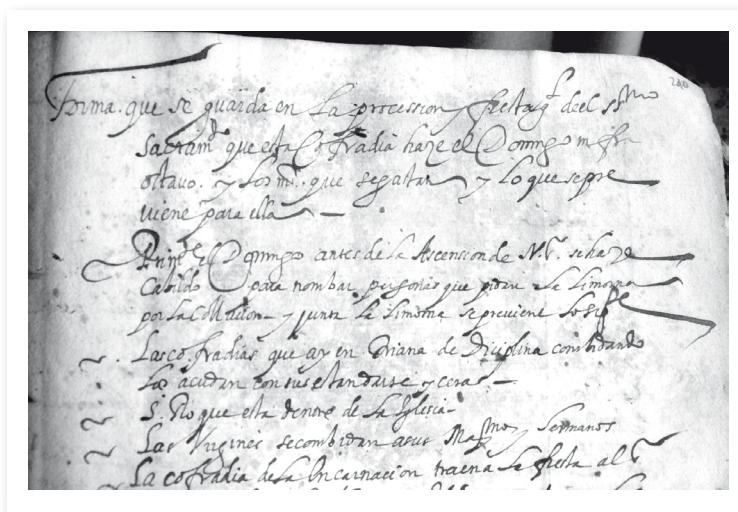 240
forma. que se guarda en La procession y fiesta q.l deel ssmo
sacram.to que esta Cofradia haze el Domingo in fra
octavo. y Los mrs. que se gastan y Lo que se pre
viene para ella
Prim.te el Domingo antes de la Ascension de N. S. se haze
Cabildo para nombar personas que pidan La Limosna
por La Collacion y junta La Limosna se previene Lo sig.te
Las cofradias que ay en triana de Diciplina conbidando
Los acudan con sus estandarte y cera
S. que esta dentro de La Iglesia
Las Virgines se conbidan a sus Mayordomos y hermanos
La cofradia de La Encarnacion traera La fiesta al